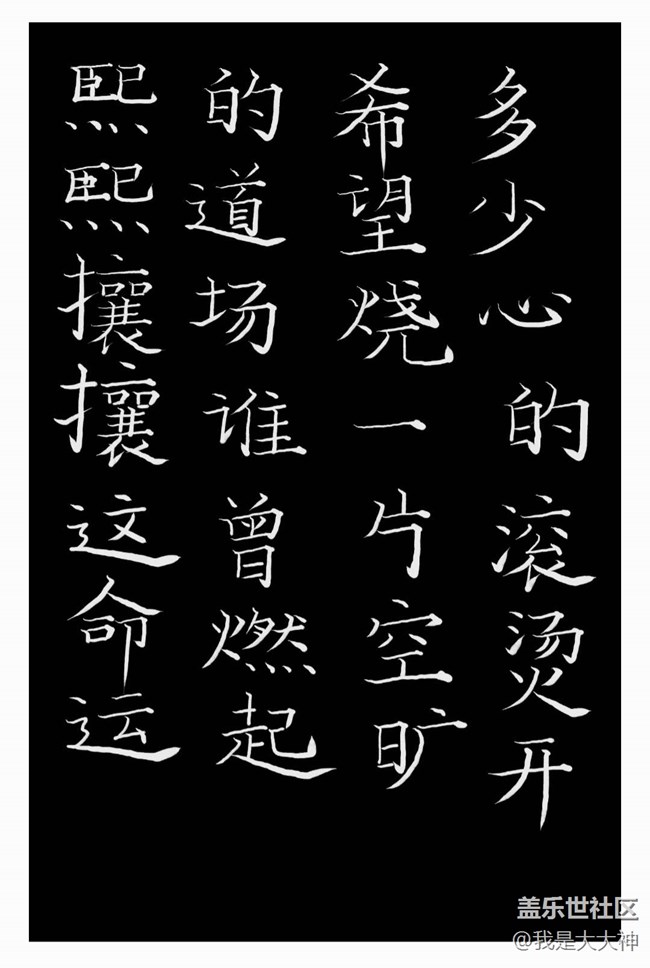 多少心的滚烫开
希望烧一片空旷
的道场谁曾燃起
熙熙攘攘这命运
盖乐世社区
@我是大大神